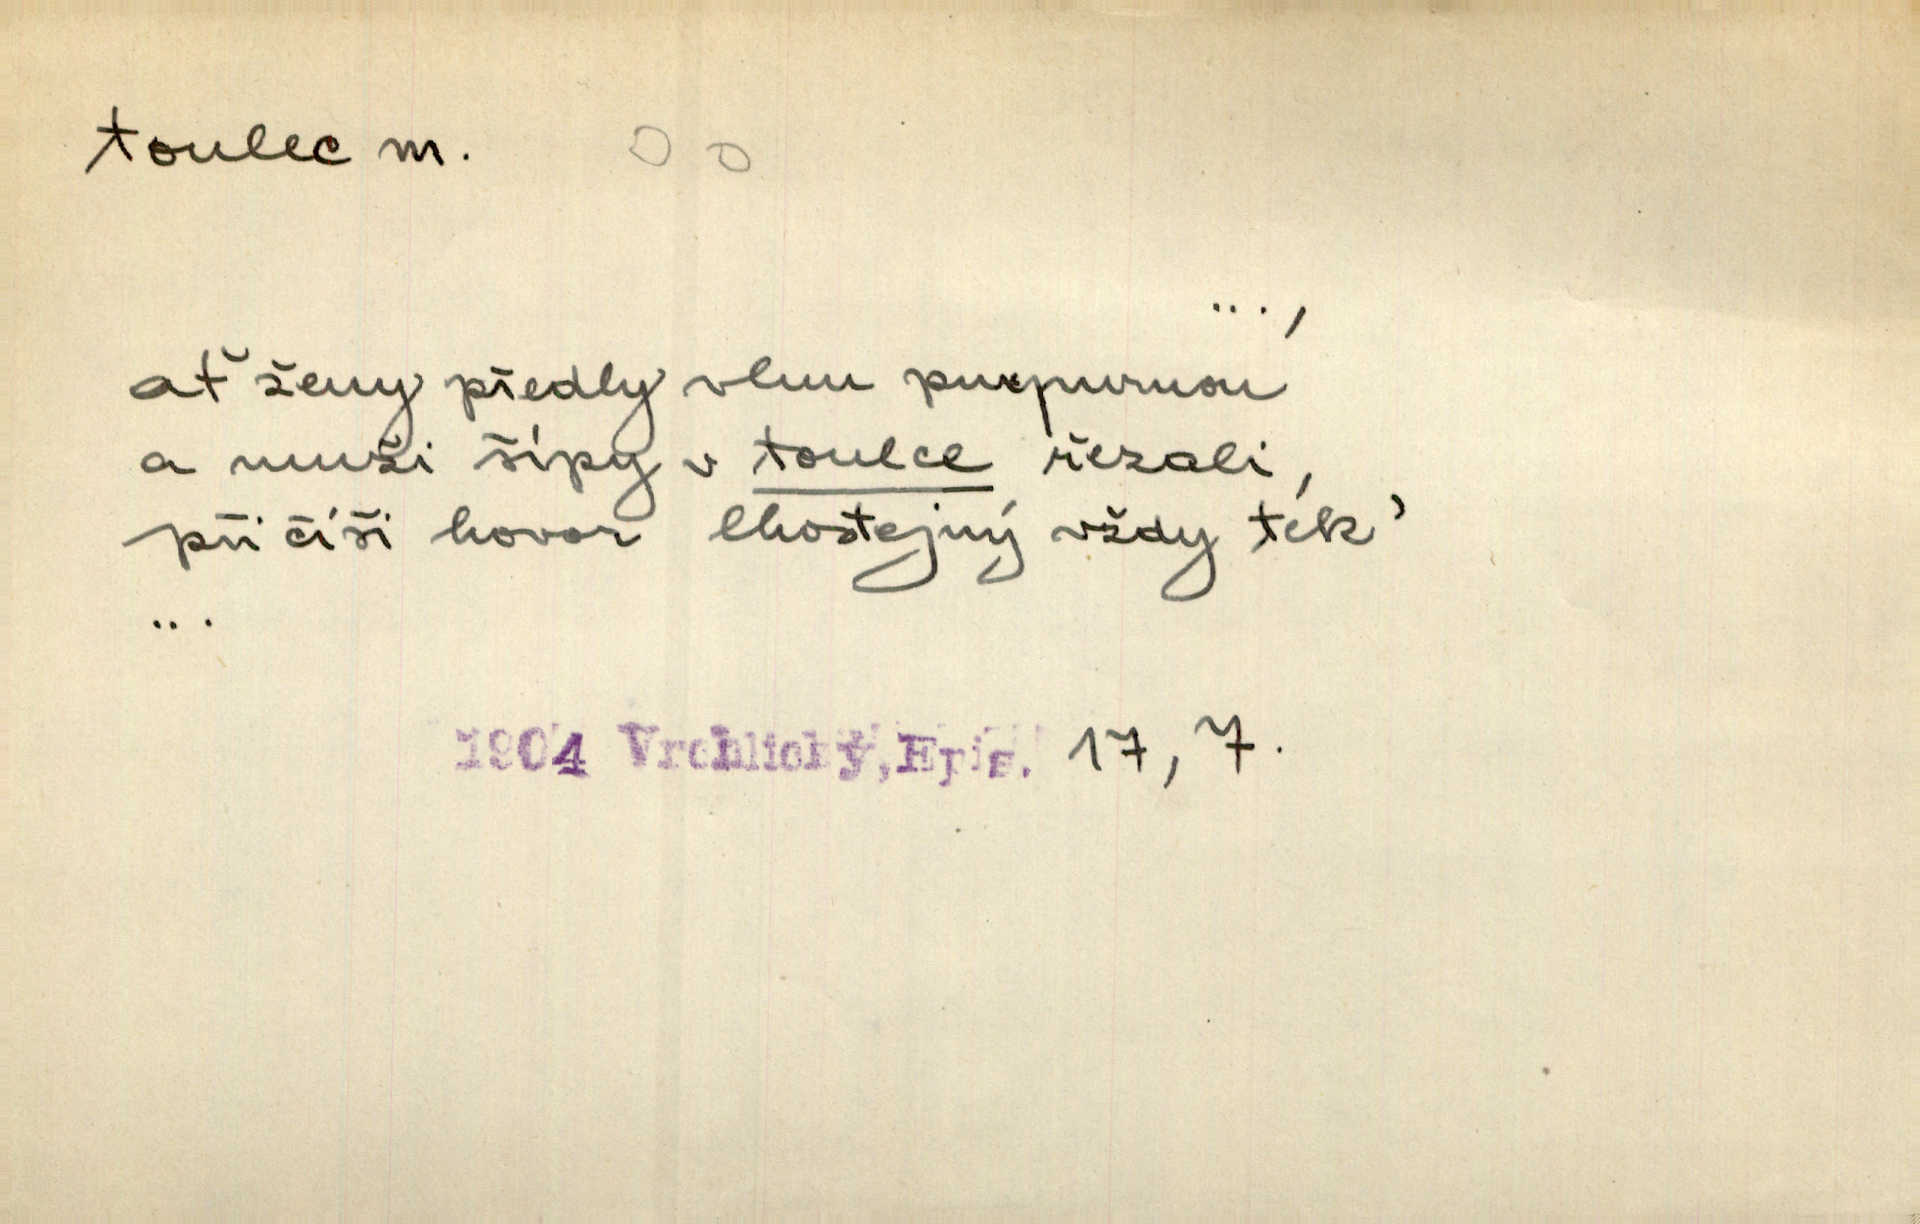 toulec m. O O
...,
ať ženy předly vlnu purpurnou
a muži šípy v toulce řezali,
při číši hovor lhostejný vždy tek'
...
1904 Vrchlický, Epis. 17, 7.